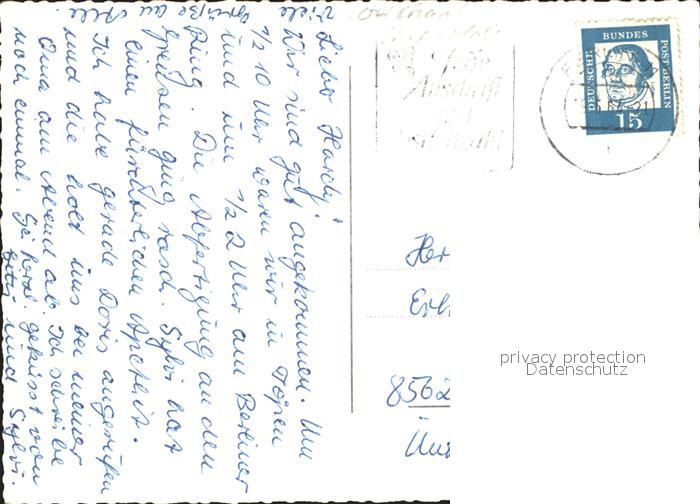 Lieber Hardy!
Wir sind gut angekommen. Um
1/2 10 Uhr waren wir in Töpen
und um 1/2 2 Uhr am Berliner
Ring. Die Abfertigung an den
Grenzen ging rasch. Sylvi hat
einen fürchterlichen Apetit.
Ich habe gerade Doris angerufen
und die holt uns bei meiner
Oma am Abend ab. Ich schreibe
noch einmal. Sei herzl. geküsst von
und Sylvi.
Viele
Grüße an
Alle.
DEUTSCHE BUNDES POST BERLIN
15
Her
856 2
privacy protection
Datenschutz